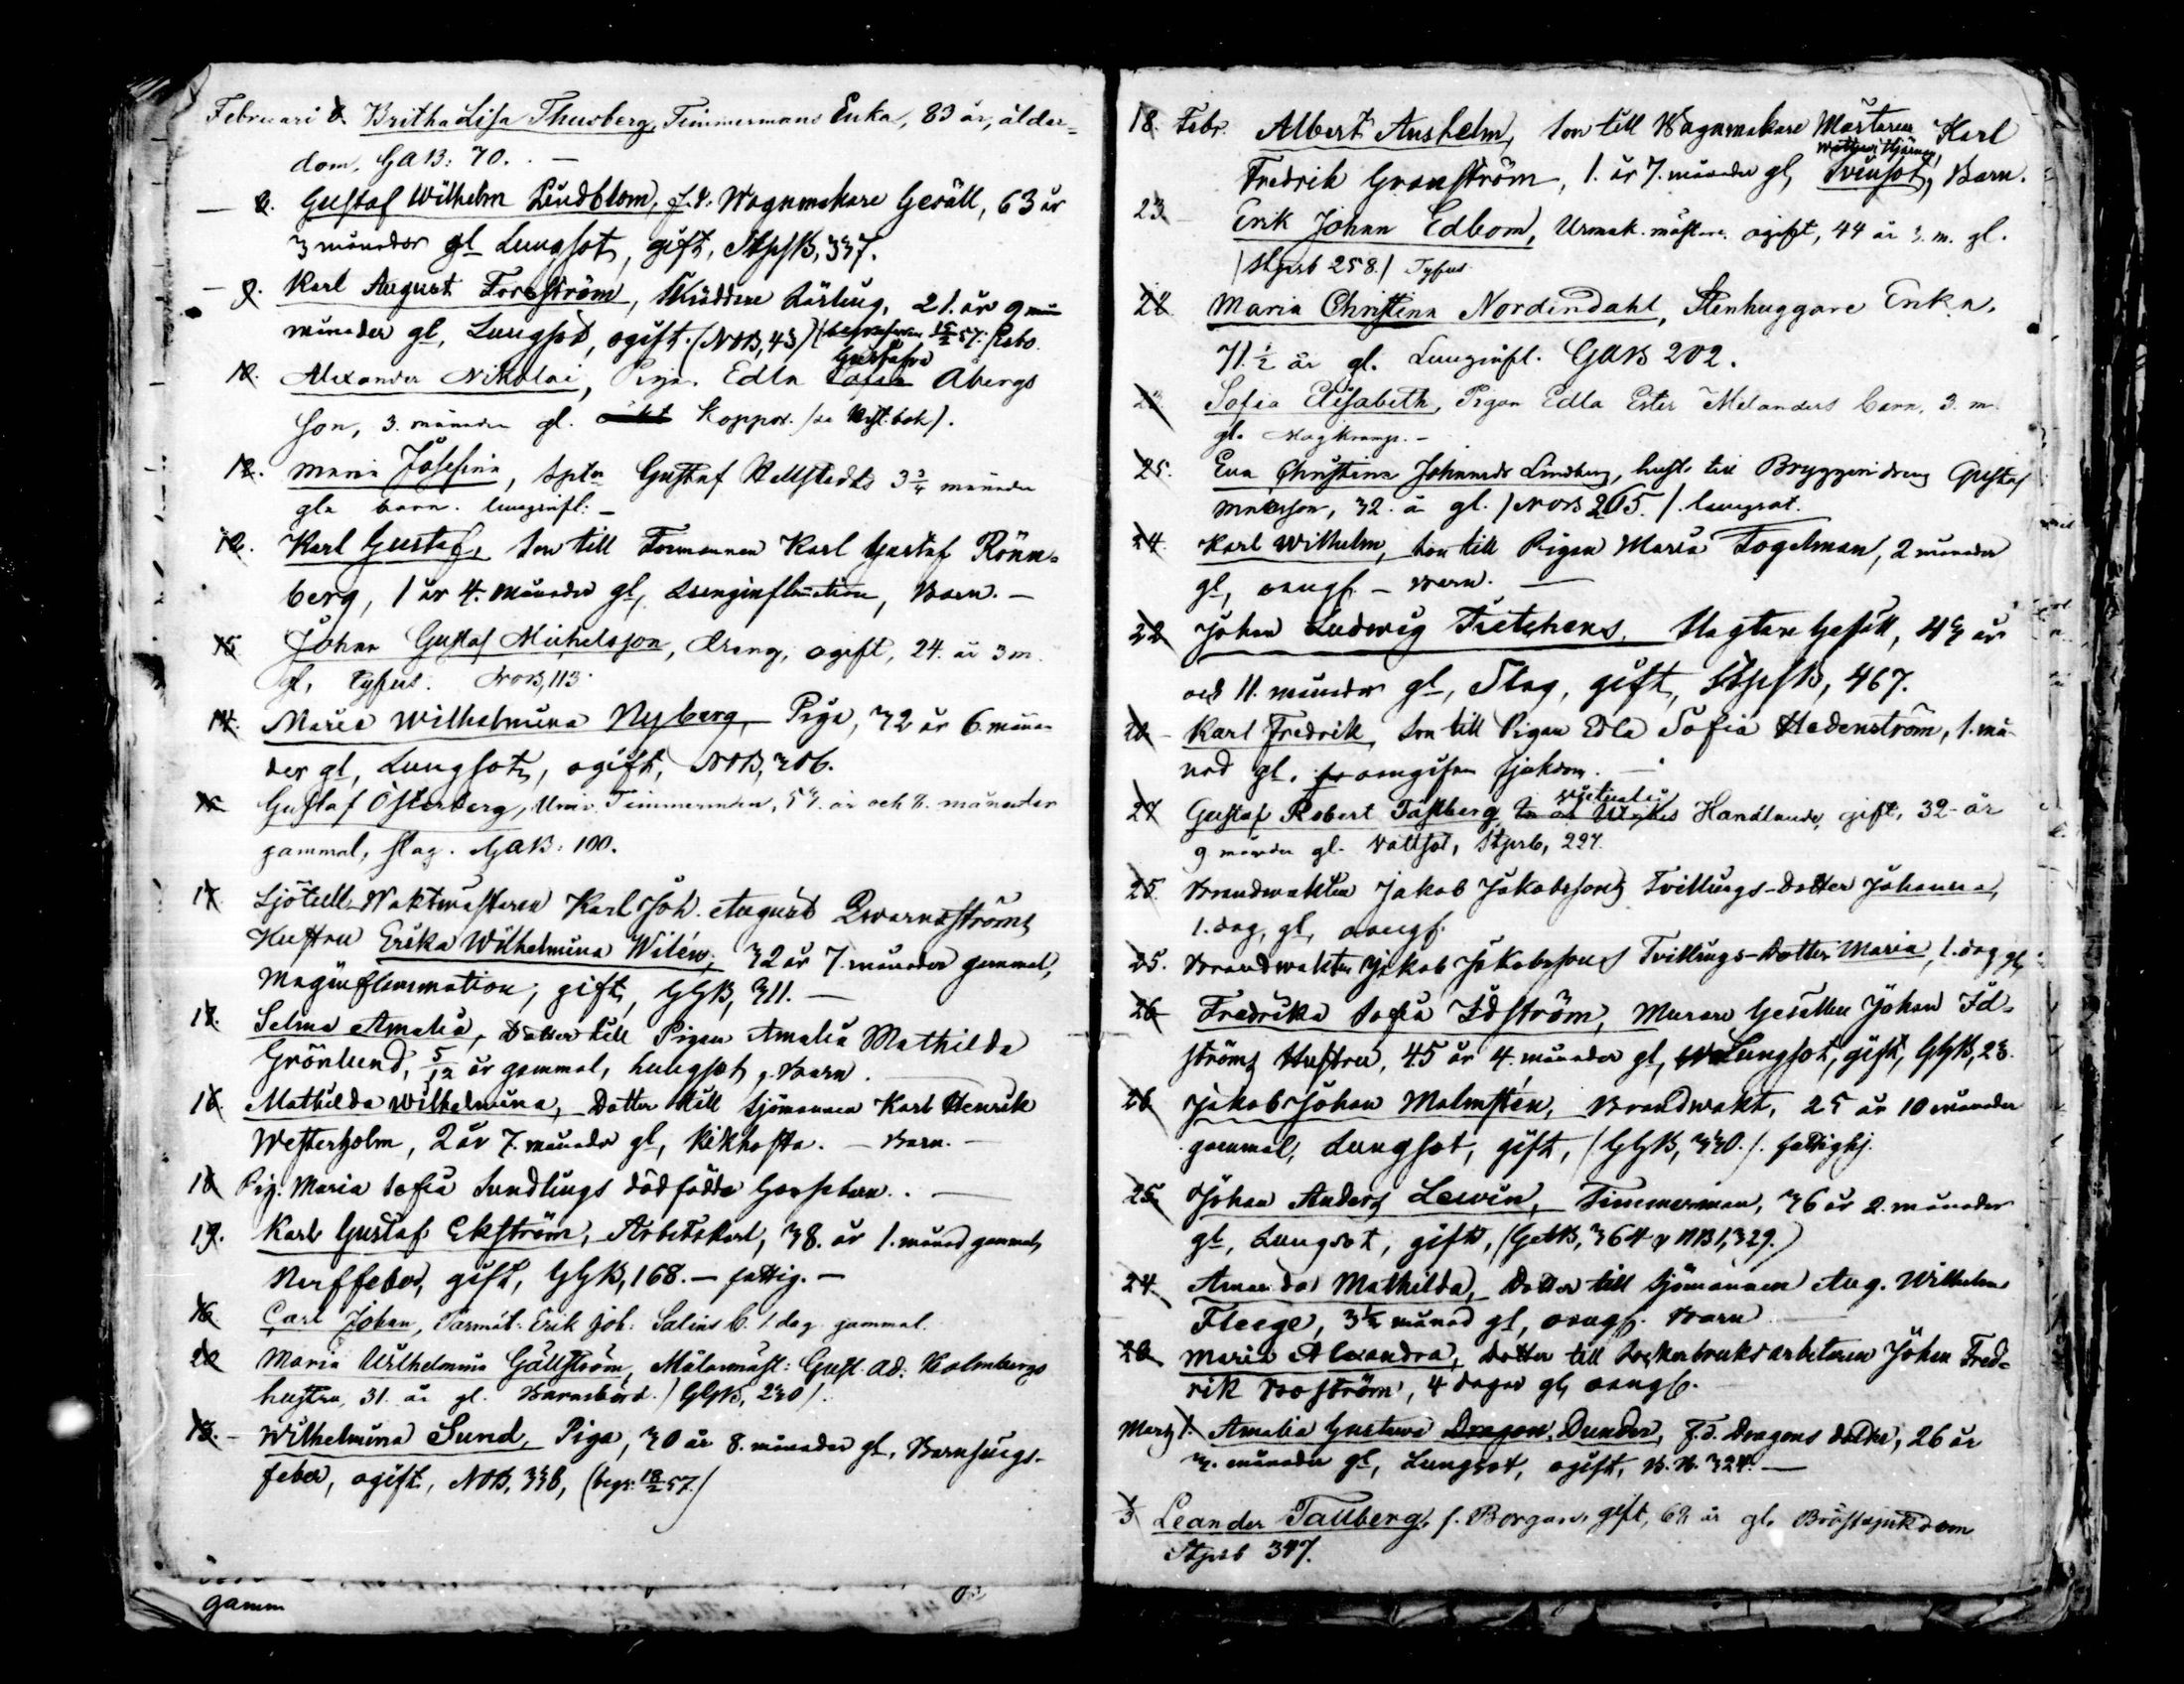 Februari 8. Britha Lisa Thusberg, Timmermans Enka, 83 år, ålder=
dom, GAB: 70. —
— 8. Gustaf Wilhelm Lindblom, f.d. Wagnmakare Gesäll, 63 år
3 månader gl Lungsot, gift, StpsB, 337.
— 9. Karl August Forsström, Skräddare Lärling, 21. år 9
månader gl, Lungsot, ogift. (NOB, 43)
Gustafva
10. Alexander Nikolai, Pigan Edla Åbergs
son, 3. månader gl. Koppor.
12. Maria Josefina, Gustaf Hellstedts 3 3/4 månader
gla barn. lunginfl: —
12. Karl Gustaf, Son till Formannen Karl Gustaf Rönn=
berg, 1 år 4. månader gl, Lunginflammation, Barn. —
15. Johan Gustaf Michelsson, dräng, ogift, 24. år 3 m.
gl, tyfus. NOB, 113.
14. Maria Wilhelmina Nyberg, Piga, 32 år 6. måna=
der gl, Lungsot, ogift, NOB, 306.
Gustaf Österberg, Timmerman, år och månader
gammal, slag. GAB: 100.
17. Sjötull-Waktmästaren Karl Joh. August Qvarnströms
Hustru Erika Wilhelmina Wilén, 32 år 7. månader gammal,
Maginflammation, gift, GGB, 311. —
Selma Amalia, Dotter till Pigan Amalia Mathilda
Grönlund, 5/12 år gammal, lungsot, Barn. —
16. Mathilda Wilhelmina, Dotter till Sjömannen Karl Henrik
Westerholm, 2 år 7. månader gl, Kikhosta. — Barn. —
18. Pig. Maria Sofia Sundlings dödfödda . —
19. Karl Gustaf Ekström, Arbetskarl, 38. år 1. månad gammal,
Nerffeber, gift, GGB, 168. — fattig. —
16. Carl Johan, Erik Joh: Salins b. 1 dag gammal.
20. Maria Wilhelmina Gällström, Målarmäst: Gust. Ad: Holmbergs
hustru, 31. år gl. Barnsbörd. / GGB, 230 /.
13. — Wilhelmina Sund, Piga, 30 år 8. månader gl, Barnsängs-
feber, ogift, NOB, 338, (begr. 18/2 57.)
gamm
18. Febr. Albert Anshelm, Son till Wagnmakare Mästaren Karl
Fredrik Granström, 1. år 7. månader gl, Barn.
23 Erik Johan Edbom, Urmak. mästare, ogift, 44 år 3. m. gl.
/ Stpsb 258. / Tyfus.
Maria Christina Nordindahl, Stenhuggare Enka,
71. 1/2 år gl. Lunginfl. GAB 202.
Sofia Elisabeth, Pigan Edla Ester Melanders barn, 3. m.
gl. Magkramp. —
25. Eva Christina Johansdr Lindberg, hustr. till Bryggeridräng Gustaf
32. år gl. / NOB 265. / . lungsot.
24. Karl Wilhelm, Son till Pigan Maria Fogelman, 2 månader
gl, oangf. — Barn. —
22 Johan Ludwig Tietchens, Slagtare Gesäll, år
och 11. månader gl, Slag, gift, StpsB, 467.
20. — Karl Fredrik, Son till Pigan Edla Sofia Hedenström, 1. må=
nad gl, oangifven sjukdom. —
victualie
27 Gustaf Robert Tastberg Handlande, gift, 32 år
9 månader gl. Stpsb, 227.
25. Brandwakten Jakob Jakobssons Tvillings-Dotter Johanna,
1. dag, gl, oangf.
25. Brandwakten Jakob Jakobssons Tvillings-Dotter Maria, 1. dag gl,
26 Fredrika Sofia Idström, Murare Gesällen Johan Id=
ströms Hustru, 45 år 4. månader gl, Lungsot, gift, GGB, 23.
26 Jakob Johan Malmstén, Brandwakt, 25 år 10 månader
gammal, Lungsot, gift, / GGB, 330. /. fattighj.
25 Johan Anders Lewin, Timmerman, 36 år 2. månader
gl, Lungsot, gift,
24. Amanda Mathilda, Dotter till Sjömannen Aug. Wilhelm
Fleege, 3 1/2 månad gl, oangf. Barn
Maria Alexandra, Dotter till Sockerbruksarbetaren Johan Fred=
rik Boström, 4 dagar gl, oangf.
Marty 1. Amalia Gustava Dragon. Dunder, F.d. Dragons dotter, 26 år
månader gl, Lungsot, ogift, —
3 Leander Tallberg, f. Borgare, gift, år gl. Bröstsjukdom
Stpsb 347.